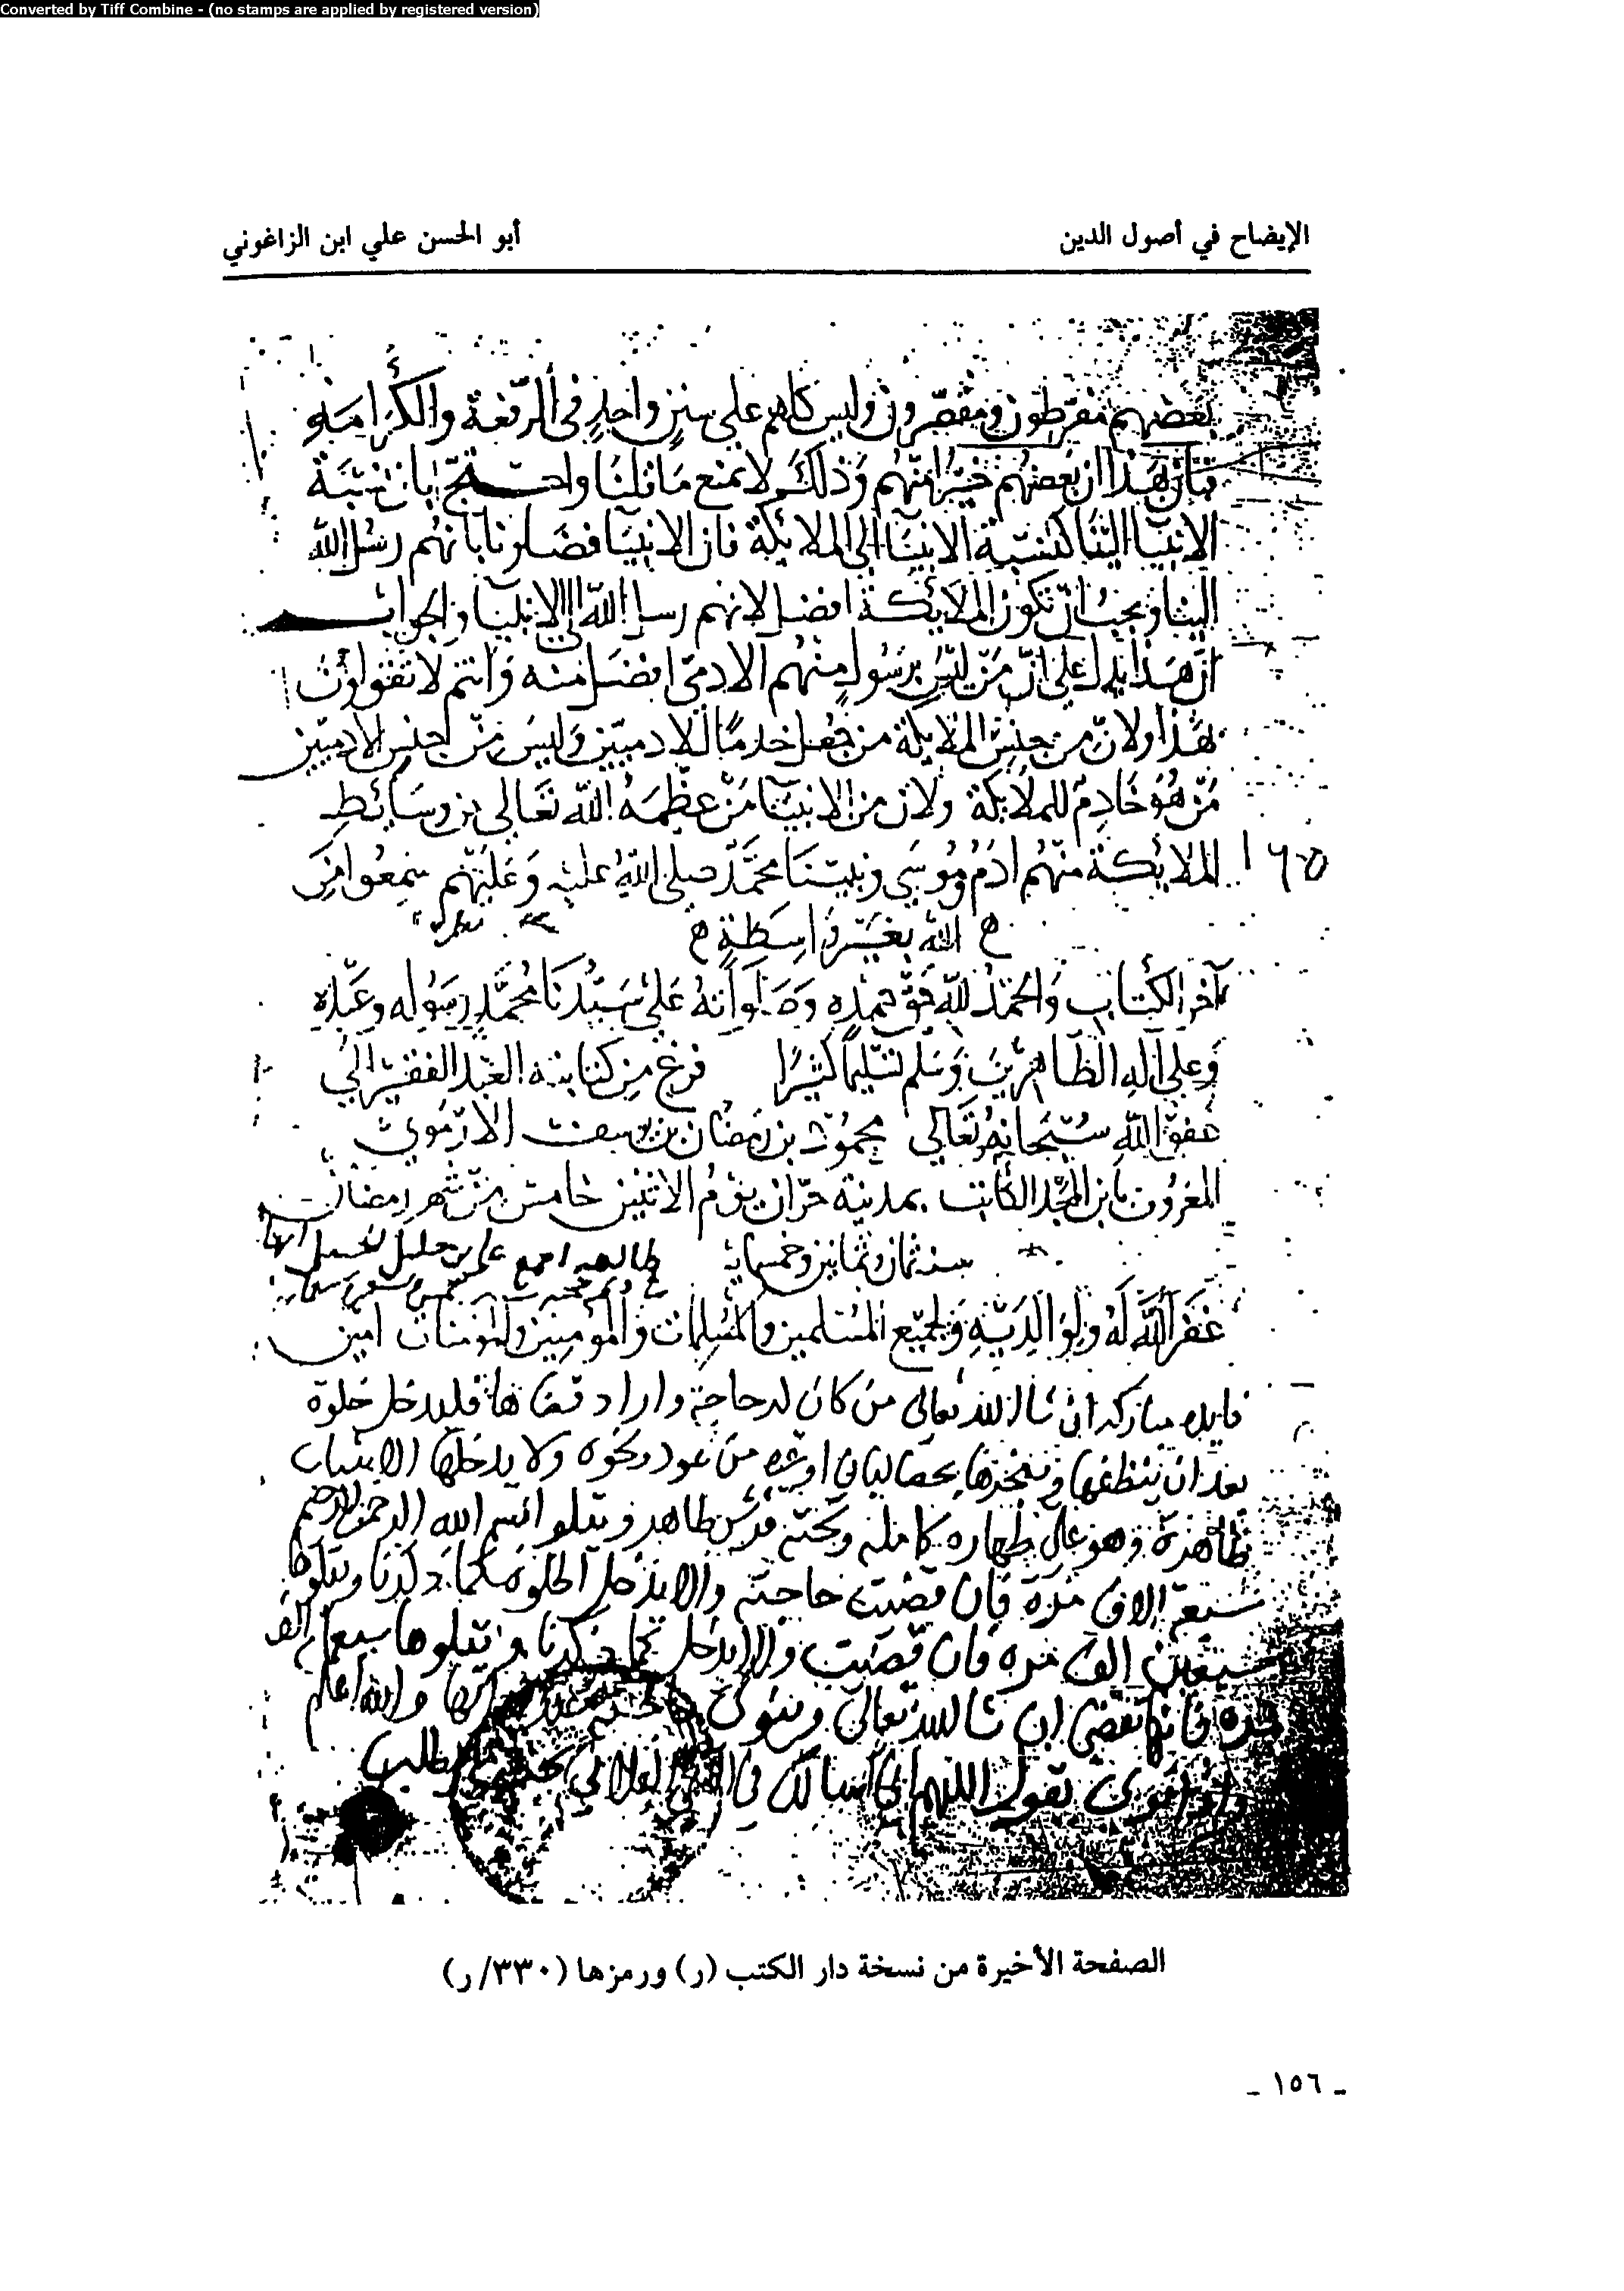 Converted by Tiff Combine - (no stamps are applied by registered version)
الإيضاح في أصول الدين
أبو الحسن علي ابن الزاغوني
بعضهم مفرطون ومقصرون وليس كلهم على سنن واحد في الرفعة والكرامة
فبان بهذا ان بعضهم خيرا منهم وذلك لا يمنع ما قلنا واحتج بان نسبة
الانبيا الينا كنسبة الانبيا الى الملائكة فان الانبيا فضلونا بانهم رسل الله
الينا ويجب ان تكون الملائكة افضل لانهم رسل الله الى الانبيا والجواب
ان هذا يدل على ان من ليس برسول منهم الادمي افضل منه وانتم لا تقولون
هذا ولان من جنس الملائكة من جعل خدما للادميين وليس من جنس الادميين
من هو خادم للملائكة ولان من الانبيا من عظمه الله تعالى من وسائط
الملائكة منهم ادم وموسى ونبينا محمد صلى الله عليه وعليهم سمعوا من
١٦٥
الله بغير واسطة
آخر الكتاب والحمد لله حق حمده وصلواته على سيدنا محمد رسوله وعبده
وعلى آله الطاهرين وسلم تسليما كثيرا فرغ من كتابته العبد الفقير الى
عفو الله سبحانه وتعالى محمود بن رمضان بن يوسف الارموي
المعروف بابن المجد الكاتب بمدينة حران يوم الاثنين خامس من شهر رمضان
سنة ثمان وثمانين وخمسماية
غفر الله له ولوالديه ولجميع المسلمين والمسلمات والمؤمنين والمؤمنات امين
فايده مباركه ان شا الله تعالى من كان له حاجة واراد قضاها فليدخل خلوة
بعد ان ينظفها ويبخرها بحصا لبان او غيره من عود ونحوه ولا يدخلها الا بثياب
طاهرة وهو على طهاره كامله وتحته فرش طاهر ويتلو بسم الله الرحمن الرحيم
سبعين الاف مرة فان قضيت حاجته والا يدخل الخلوه كما ذكرنا ويتلوها
سبعين الف مره فان قضيت والا يدخل كما ذكرنا ويتلوها سبعماية الف
مره فانها تقضى ان شا الله تعالى وينوي والله اعلم
تقول اللهم اني اسالك
الصفحة الأخيرة من نسخة دار الكتب (ر) ورمزها (٣٣٠/ر)
- ١٥٦ -